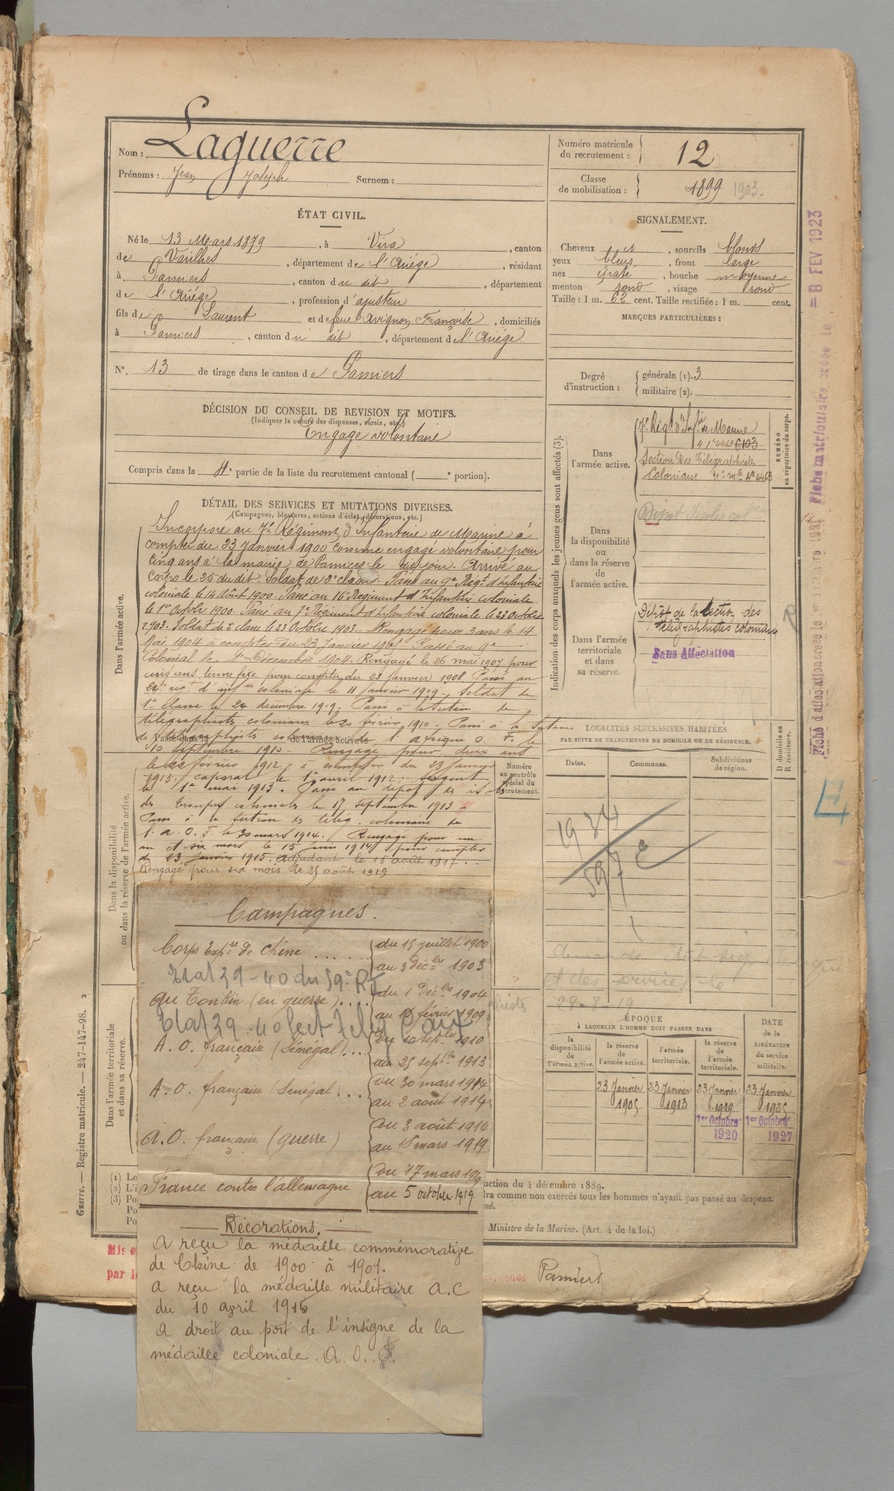 Nom : Laguerre
Prénoms : Jean Joseph Surnom :
Numéro matricule du recrutement : 12
Classe de mobilisation : 1899 1903.
ÉTAT CIVIL.
Né le 13 Mars 1879, à Vira, canton
de Varilhes, département de l'Ariège, résidant
à Pamiers, canton du dit, département
de l'Ariège, profession d'ajusteur
fils de Laurent et de feue Avignon Françoise, domiciliés
à Pamiers, canton du dit, département de l'Ariège
N° 13 de tirage dans le canton de Pamiers
SIGNALEMENT.
Cheveux et, sourcils blonds
yeux bleus, front large
nez épaté, bouche moyenne
menton rond, visage rond
Taille : 1 m. 62 cent. Taille rectifiée : 1 m. cent.
MARQUES PARTICULIÈRES :
Degré d'instruction : générale (1). 3
militaire (2).
DÉCISION DU CONSEIL DE REVISION ET MOTIFS.
(Indiquer la nature des dispenses, sursis, etc.)
Engagé volontaire
Compris dans la 4e partie de la liste du recrutement cantonal ( e portion).
DÉTAIL DES SERVICES ET MUTATIONS DIVERSES.
(Campagnes, blessures, actions d'éclat, décorations, etc.)
Dans l'armée active.
Incorporé au 7e Régiment d'Infanterie de Marine à
compter du 23 Janvier 1900 comme engagé volontaire pour
cinq ans à la mairie de Pamiers le dit jour. Arrivé au
corps le 26 du dit. Soldat de 2e classe. Passé au 9e Régt d'Infanterie
coloniale le 14 Août 1900. Passé au 16e Régiment d'Infanterie coloniale
le 1er Octobre 1900. Passé au Régiment d'Infanterie coloniale le 23 Octobre
1903. Soldat de classe le 23 Octobre 1903. Rengagé pour 3 ans le 14
Mai 1904 à compter du 23 Janvier 1905. Passé au 9e
Colonial le 1er Décembre 1904. Rengagé le 26 mai 1907 pour
cinq ans pour compter du 23 janvier 1908. Passé au
24e régt d'inf coloniale le 11 janvier 1909. Soldat de
1re classe le 24 décembre 1909. Passé à la section de
télégraphistes coloniaux le 20 février 1910. Passé à la Section
de télégraphistes coloniaux de l'afrique O. F. le
10 septembre 1910. Rengagé pour deux ans
le 22 février 1912 à compter du 23 janvier
1913. Caporal le 1er avril 1912. Sergent
le 1er mai 1913. Passé au dépôt des isolés
des troupes coloniales le 17 septembre 1913.
Passé à la section de télég. coloniaux de
l'a. O. F. le 30 mars 1914. Rengagé pour un
an et six mois le 15 juin 1914 pour compter
du 23 janvier 1915. adjudant le 16 août 1917.
Rengagé pour six mois le 25 août 1919
Dans la disponibilité ou dans la réserve de l'armée active.
Dans l'armée territoriale et dans sa réserve.
Indication des corps auxquels les jeunes gens sont affectés (3).
Dans l'armée active.
7e Régt d'Infie de Marine
Section Des Télégraphistes
Coloniaux
NUMÉRO au répertoire du corps.
Dans la disponibilité ou dans la réserve de l'armée active.
Dans l'armée territoriale et dans sa réserve.
Dépôt de la Section des
télégraphistes coloniaux
Sans Affectation
LOCALITÉS SUCCESSIVES HABITÉES
PAR SUITE DE CHANGEMENTS DE DOMICILE OU DE RÉSIDENCE.
Dates. Communes. Subdivisions de région. D domicile ou R résidence.
Numéro au contrôle spécial du recrutement.
28.8.19
ÉPOQUE
À LAQUELLE L'HOMME DOIT PASSER DANS
la disponibilité de l'armée active. la réserve de l'armée active. l'armée territoriale. la réserve de l'armée territoriale.
DATE de la LIBÉRATION du service militaire.
23 Janvier 1905 23 Janvier 1913 23 Janvier 1919 23 Janvier 1925
1er Octobre 1920 1er Octobre 1927
Campagnes.
Corps Expre de Chine .... du 15 juillet 1900
au 3 Décbre 1903
Etat 39-40 du 59e RI
au Tonkin (en guerre) .... du 1 Décbre 1904
au février 1909
A. O. française (Sénégal) ... du 10 septbre 1910
au 25 septbre 1913
A. O. française (Sénégal) ... du 30 mars 1914
au 2 août 1914
A. O. française (guerre) du 3 août 1914
au 16 mars 1919
France contre l'allemagne du 17 mars 1919
au 5 octobre 1919
Décorations.
A reçu la médaille commémorative
de Chine de 1900 à 1901.
A reçu la médaille militaire A.C
du 10 avril 1916
A droit au port de l'insigne de la
médaille coloniale. A. O. F.
ction du 4 décembre 1889.
dra comme non exercés tous les hommes n'ayant pas passé au drapeau.
Ministre de la Marine. (Art. 4 de la loi.)
Pamiers
Guerre. — Registre matricule. — 247-147-98.
= 8 FEV 1923